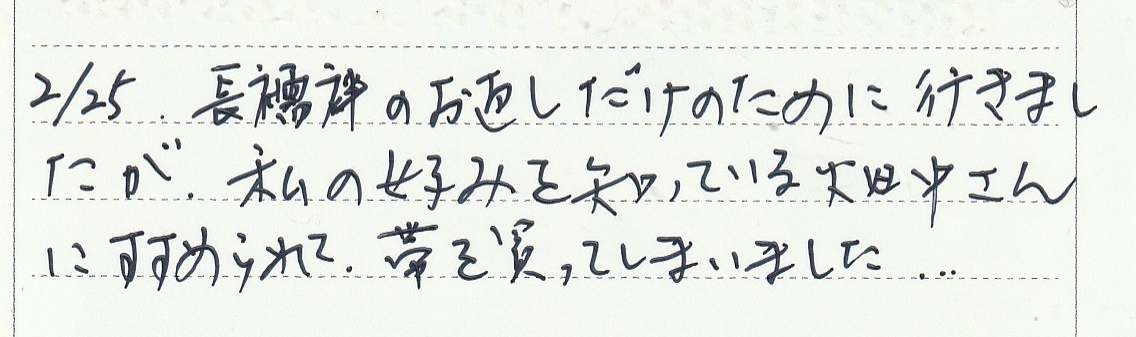 2/25. 長襦袢のお直しだけのために行きまし
たが、私の好みを知っている畑中さん
にすすめられて、帯を買ってしまいました…